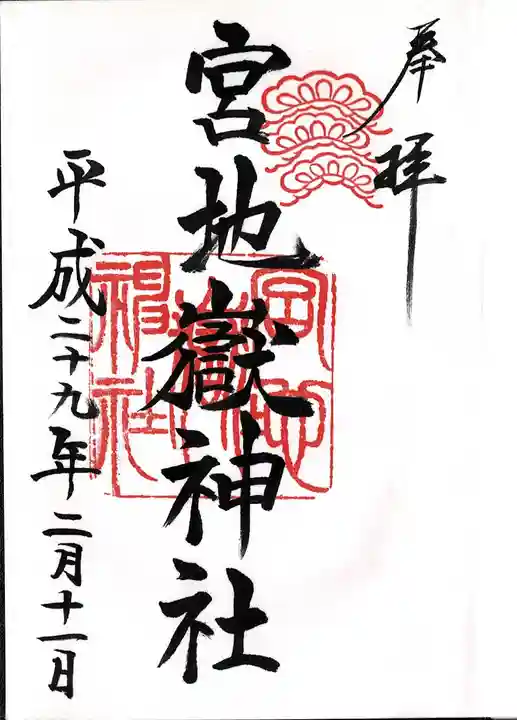 奉拝
宮地嶽神社
宮地嶽神社
平成二十九年二月十一日